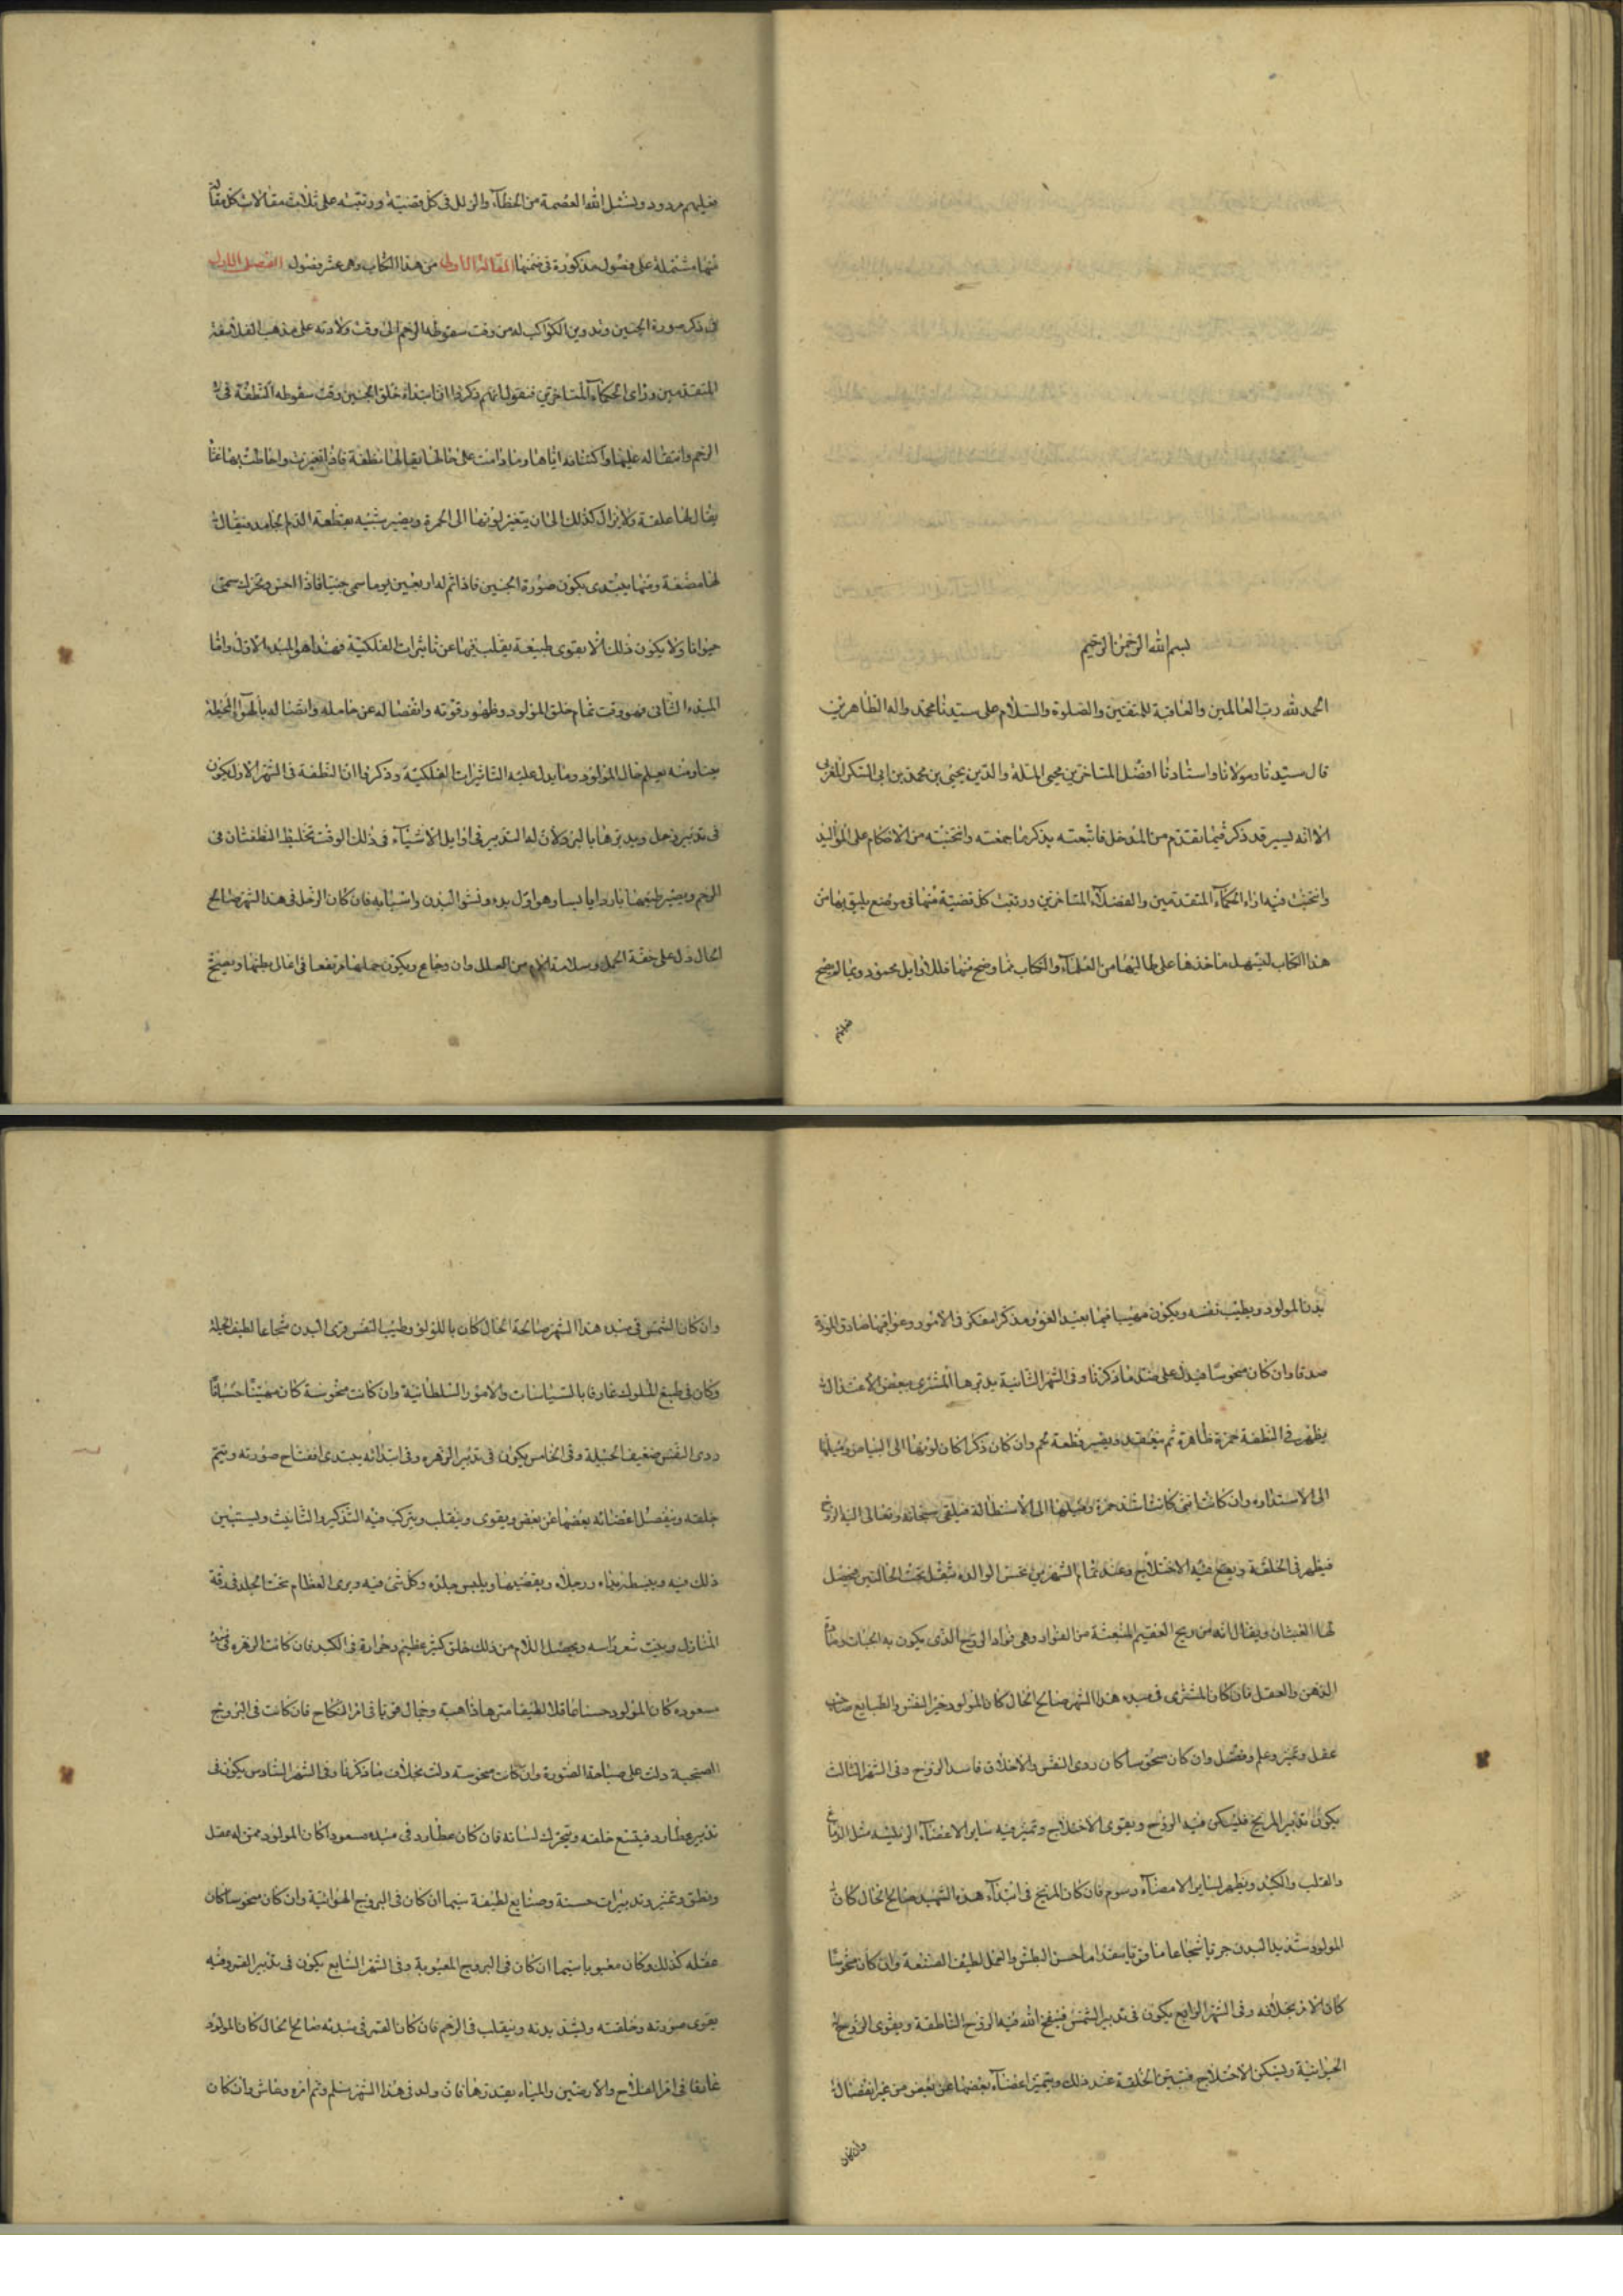 بسم الله الرحمن الرحيم
الحمد لله رب العالمين والعاقبة للمتقين والصلوة والسلام على سيدنا محمد واله الطاهرين
قال سيدنا ومولانا واستادنا افضل المتاخرين محيي الملة والدين يحيى بن محمد بن ابي الشكر المغربي
الا انه يسير قد ذكر فيما تقدم من المدخل فاتبعته بذكر ما جمعته وانتخبته من الاحكام على المواليد
وانتخبت فيه اراء الحكماء المتقدمين والفضلاء المتاخرين ورتبت كل قضية منها في موضع يليق بها من
هذا الكتاب ليسهل ماخذها على طالبيها من العلماء والكتاب فما وضح منها فللاوايل محسوب وما لم يوضح
فعليهم
فعليهم مردود ونسئل الله العصمة من الخطاء والزلل في كل قضية ورتبته على ثلاث مقالات كل مقالة
منها مشتملة على فصول مذكورة في ضمنها المقالة الاولى من هذا الكتاب وهى عشر فصول الفصل الاول
في ذكر صورة الجنين وتدوير الكواكب له من وقت سقوطه الرحم الى وقت ولادته على مذهب الفلاسفة
المتقدمين وراى الحكماء المتاخرين فنقول انهم ذكروا ان ابتداء خلق الجنين وقت سقوطه النطفة في
الرحم واشتماله عليها واكتنانه اياها وما دامت على حالها يقال لها نطفة فاذا تغيرت واحاطت بها غشا
يقال لها علقة ولا يزال كذلك الى ان يتغير لونها الى الحمرة ويصير شبيه بقطعة الدم الجامد فيقال
لها مضغة ومنها يبتدى بكون صورة الجنين فاذا تم له اربعين يوما سمى جنينا فاذا احس وتحرك سمى
حيوانا ولا يكون ذلك الا بقوى طبيعة يقلب فيها عن تاثيرات الفلكية فهذا هو المبدء الاول واما
المبدء الثانى فهو وقت تمام خلق المولود وظهور قوته وانفصاله عن حامله واتصاله بالهواء المحيط
بنا ومنه يعلم حال المولود وما يدل عليه التاثيرات الفلكية وذكروا ان النطفة في الشهر الاول يكون
في تدبير زحل ويدبرها بالبرد لان له التدبير في اوايل الاشياء في ذلك الوقت تختلط النطفتان في
الرحم ويصير طبعها باردا يابسا وهو اول بدء ونشو البدن واسبابه فان كان الزحل في هذا الشهر صالح
الحال دل على خفة الحمل وسلامة الام من العلل وان وجاع ويكون حملها مرتفعا في اعالى بطنها ويصح
بدن المولود ويطيب نفسه ويكون مهيبا فهيما بعيد الغور مذكرا مفكر في الامور وعواقبها صادق المودة
صدقا وان كان منحوسا فيدل على ضد ما ذكرنا وفي الشهر الثانية يدبرها المشترى ببعض الاعتدال
يظهر في النطفة حمرة ظاهرة ثم ينعقد ويصير قطعة لحم وان كان ذكرا كان لونها الى البياض وميلها
الى الاستداره وان كانت انثى كانت اشد حمرة وميلها الى الاستطالة فيلقى سبحانه وتعالى اليه الروح
فيظهر في الخلقة ويقع فيه الاختلاج وعند تمام الشهرين تحس الوالده بثقل تحت الحالبين فيحصل
لها الغثيان ويقال انه من ريح العقيم المنبعثة من الفواد وهى نواد الروح الذى يكون به الحيات ومادة
الذهن والعقل فان كان المشترى في مبدء هذا الشهر صالح الحال كان المولود خير النفس والطبايع صاحب
عقل وتميز وعلم وفضل وان كان منحوسا كان ردى النفس والاخلاق فاسد الروح وفي الشهر الثالث
يكون تدبير المريخ فليسكن فيه الروح ويقوى الاختلاج وتميز فيه ساير الاعضاء الرئيسة مثل الدماغ
والقلب والكبد ويظهر لساير الاعضاء رسوم فان كان المريخ في ابتداء هذه الشهر صالح الحال كان
المولود شديد البدن جريا شجاعا قويا مقداما حسن البطش والعمل لطيف الصنعة وان كان منحوسا
كان الامر بخلافه وفي الشهر الرابع يكون في تدبير الشمس فينفخ الله فيه الروح الناطقة ويقوى الروح
الحيوانية ويسكن الاختلاج فتبين الخلقة عند ذلك ويتميز اعضاء بعضها عن بعض من غير انفصال
وان كان
وان كان الشمس في مبدء هذا الشهر صالحة الحال كان باللولق وطيب النفس قوى البدن شجاعا لطيف الحيلة
وكان في طبع الملوك عارفا بالسياسات والامور السلطانية وان كانت منحوسة كان مهينا خسيسا
ردى النفس ضعيف الحيلة وفي الخامس يكون في تدبير الزهره وفي ابتدائه يبتدى انفتاح صورته ويتم
خلقه وينفصل اعضائه بعضها عن بعض ويقوى وينقلب ويتركب فيه التذكير والتانيث ويستبين
ذلك فيه ويبسط يداه ورجلاه ويقضبها ويلبس جلده وكل شئ فيه ويرى العظام تحت الجلد في دقة
المنازل وينبت شعر راسه ويحصل الام من ذلك خلق كثير عظيم وحرارة في الكبد فان كانت الزهره في مبدئه
مسعوده كان المولود حسنا عاقلا لطيفا متنزها ذا هيبة وجمال قويا في امر النكاح فان كانت في البروج
الصحيحة دلت على صباحة الصورة وان كانت منحوسة دلت بخلاف ما ذكرنا وفي الشهر السادس يكون في
تدبير عطارد فيتسع خلقه ويتحرك لسانه فان كان عطارد في مبدئه مسعودا كان المولود ممن له عقل
ونطق وتميز وتدبيرات حسنة وصنايع لطيفة سيما ان كان في البروج الهوائية وان كان منحوسا كان
عقله كذلك وكان معيوبا سيما ان كان في البروج المعيوبة وفي الشهر السابع يكون في تدبير القمر وفيه
يقوى صورته وخلقته ويشتد بدنه وينقلب في الرحم فان كان القمر في مبدئه صالح الحال كان المولود
عارفا في امر الفلاح والارضين والمياه بقدرها فان ولد في هذا الشهر سلم وتم امره وعاش وان كان